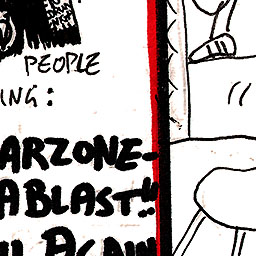 PEOPLE
ING:
ARZONE-
ABLAST!!
AGAIN